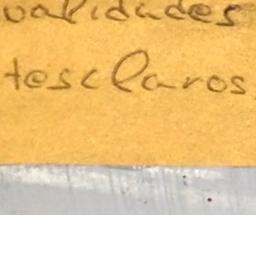 validades
tesclaros